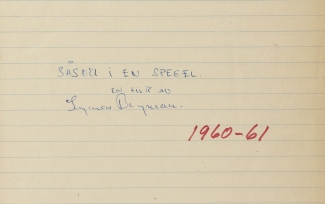 SÅSOM I EN SPEGEL.
EN FILM AV
Ingmar Bergman.
1960-61